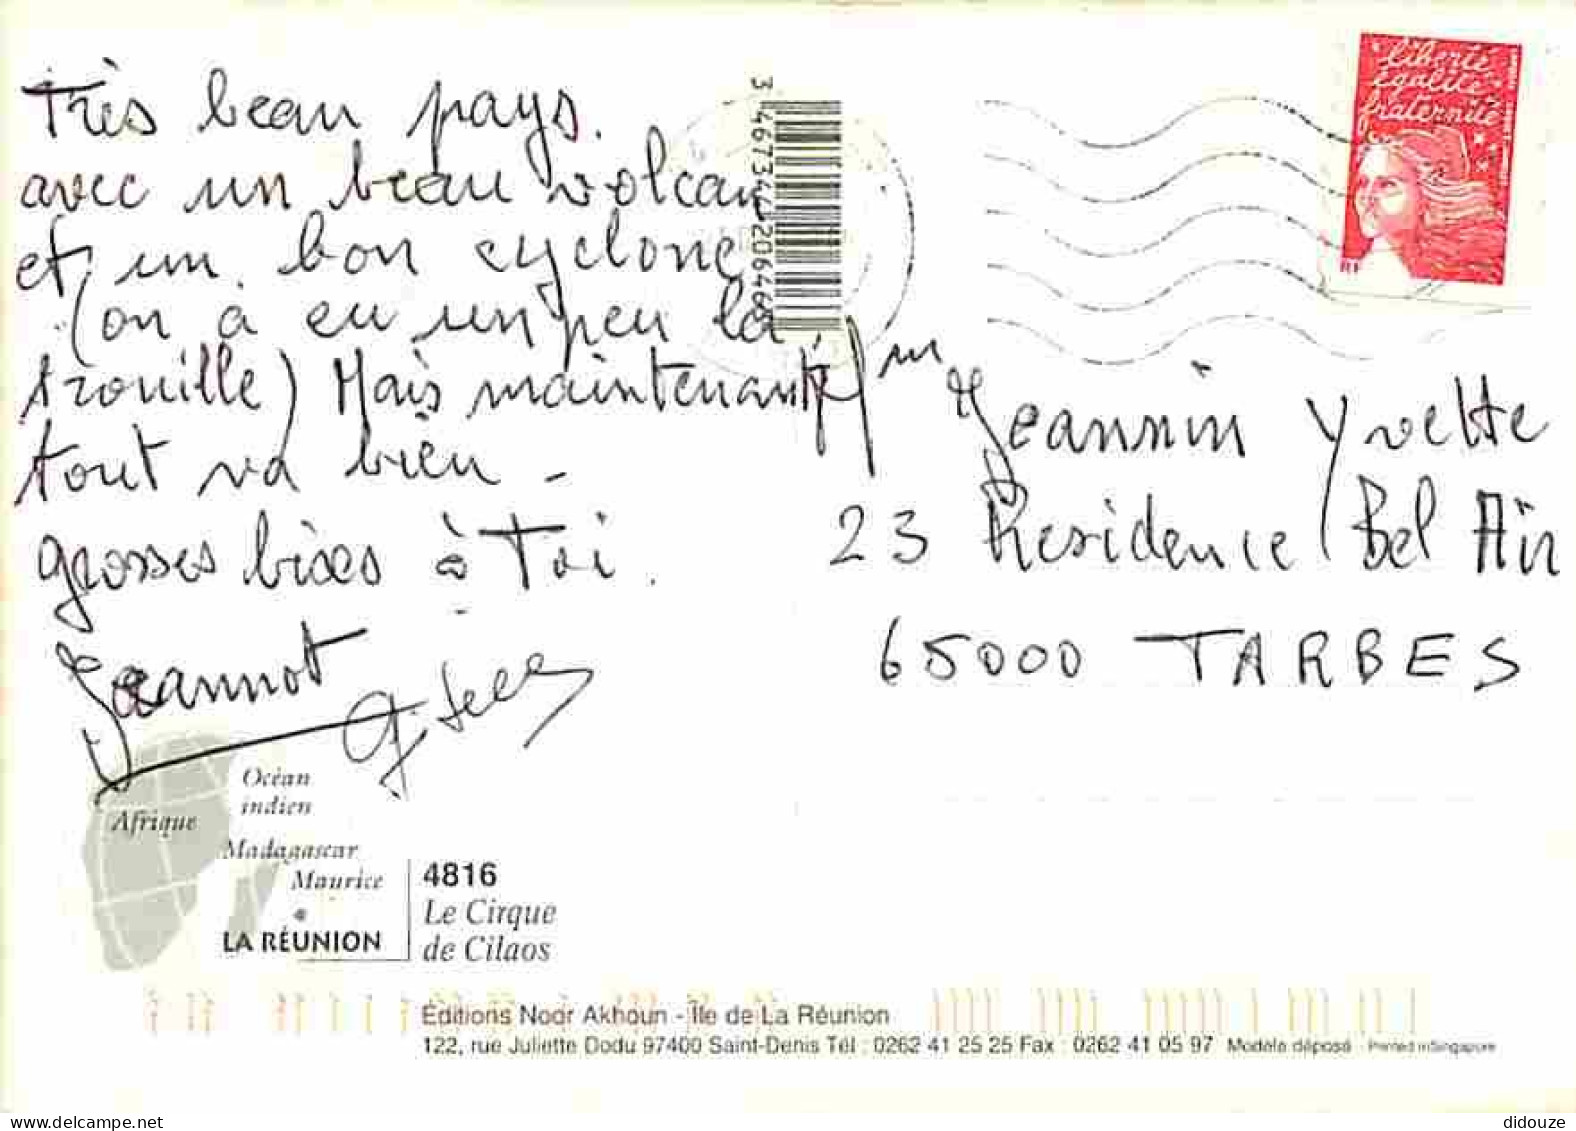 Très beau pays.
avec un beau volcan
et un bon cyclone
(on à eu un peu la
trouille) Mais maintenant
tout va bien -
grosses bises à Toi.
Jeannot
3 467344 206466
liberté
égalité
fraternité
RF
Jeannin Yvette
23 Residence Bel Air
65000 TARBES
Océan
indien
Afrique
Madagascar
Maurice
LA RÉUNION
4816
Le Cirque
de Cilaos
Éditions Noor Akhoun - Île de La Réunion
122, rue Juliette Dodu 97400 Saint-Denis Tél : 0262 41 25 25 Fax : 0262 41 05 97 Modèle déposé - Printed in Singapore
delcampe.net
didouze